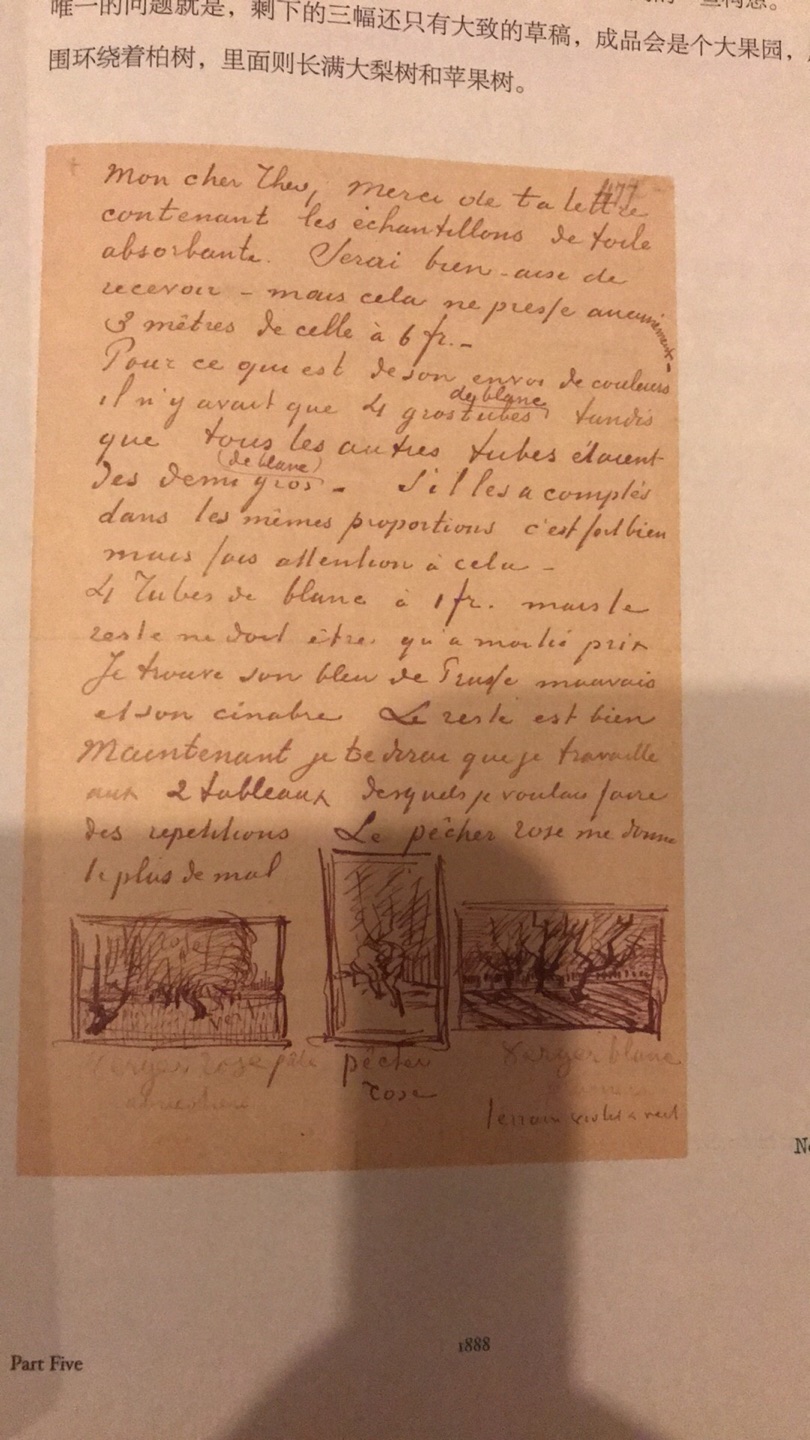 唯一的问题就是，剩下的三幅还只有大致的草稿，成品会是个大果园，
围环绕着柏树，里面则长满大梨树和苹果树。
Mon cher Theo, Merci de ta lettre
contenant les échantillons de toile
absorbante. Serai bien-aise de
recevoir – mais cela ne presse aucunement –
3 mètres de celle à 6 fr. –
Pour ce qui est de son envoi de couleurs
il n'y avait que 4 gros tubes de blanc tandis
que tous les autres tubes étaient
des demi gros (de blanc) – S'il les a comptés
dans les mêmes proportions c'est fort bien
mais fais attention à cela –
4 Tubes de blanc à 1 fr. mais le
reste ne doit être qu'à moitié prix
Je trouve son bleu de Prusse mauvais
et son cinabre Le reste est bien
Maintenant je te dirai que je travaille
aux 2 tableaux desquels je voulais faire
des repetitions Le pêcher rose me donne
le plus de mal
rose
vert
verger rose pâle
pêcher
rose
verger blanc
terrain violet & vert
1888
Part Five